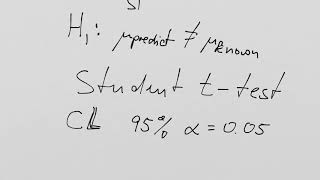 H₁: μpredict ≠ μknown
Student t-test
CL 95% α = 0.05